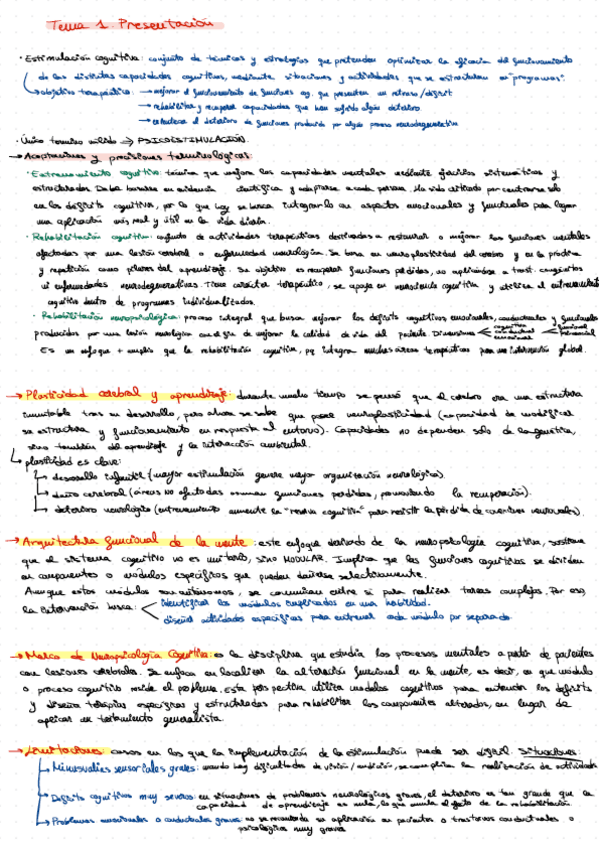 Tema 1. Presentación
· Estimulación cognitiva: conjunto de técnicas y estrategias que pretenden optimizar la eficacia del funcionamiento
de las distintas capacidades cognitivas, mediante situaciones y actividades que se estructuran en "programas".
objetivo terapéutico: → mejorar el funcionamiento de funciones cog. que presentan un retraso/déficit
→ rehabilitar y recuperar capacidades que han sufrido algún deterioro
→ el deterioro de funciones producido por algún proceso neurodegenerativo
· Único termino válido → PSICOESTIMULACIÓN.
→ Aceptaciones y precisiones terminológicas:
· Entrenamiento cognitivo: técnica que mejora las capacidades mentales mediante ejercicios sistemáticos y
estructurados. Debe basarse en evidencia científica y adaptarse a cada persona. Ha sido criticado por centrarse solo
en los déficits cognitivos, por lo que hoy se busca integrarlo con aspectos emocionales y funcionales para lograr
una aplicación más real y útil en la vida diaria.
· Rehabilitación cognitiva: conjunto de actividades terapéuticas destinadas a restaurar o mejorar las funciones mentales
afectadas por una lesión cerebral o enfermedad neurológica. Se basa en neuroplasticidad del cerebro y en la práctica
y repetición como pilares del aprendizaje. Su objetivo es recuperar funciones perdidas, no aplicándose a trast. congénitos
ni enfermedades neurodegenerativas. Tiene carácter terapéutico, se apoya en neurociencia cognitiva y utiliza el entrenamiento
cognitivo dentro de programas individualizados.
· Rehabilitación neuropsicológica: proceso integral que busca mejorar los déficits cognitivos emocionales, conductuales y funcionales
producidos por una lesión neurológica con el fin de mejorar la calidad de vida del paciente. Dimensiones cognitiva conductual emocional funcional psicosocial
Es un enfoque + amplio que la rehabilitación cognitiva, pq integra muchas áreas terapéuticas para una intervención global.
→ Plasticidad cerebral y aprendizaje: durante mucho tiempo se pensó que el cerebro era una estructura
inmutable tras su desarrollo, pero ahora se sabe que posee neuroplasticidad (capacidad de modificar
su estructura y funcionamiento en respuesta al entorno). Capacidades no dependen solo de la genética,
sino también del aprendizaje y la interacción ambiental.
plasticidad es clave:
→ desarrollo infantil (mayor estimulación genera mayor organización neurológica).
→ daño cerebral (áreas no afectadas asuman funciones perdidas, promoviendo la recuperación).
→ deterioro neurológico (entrenamiento aumenta la "reserva cognitiva" para resistir la pérdida de conexiones neuronales).
→ Arquitectura funcional de la mente: este enfoque derivado de la neuropsicología cognitiva, sostiene
que el sistema cognitivo no es unitario, sino MODULAR. Implica que las funciones cognitivas se dividen
en componentes o módulos específicos que pueden dañarse selectivamente.
Aunque estos módulos son autónomos, se comunican entre sí para realizar tareas complejas. Por eso,
la intervención busca: identificar los módulos implicados en una habilidad.
diseñar actividades específicas para entrenar cada módulo por separado.
→ Marco de Neuropsicología Cognitiva: es la disciplina que estudia los procesos mentales a partir de pacientes
con lesiones cerebrales. Se enfoca en localizar la alteración funcional en la mente, es decir, en que módulo
o proceso cognitivo reside el problema. Esta perspectiva utiliza modelos cognitivos para entender los déficits
y diseña terapias específicas y estructuradas para rehabilitar los componentes alterados, en lugar de
aplicar un tratamiento generalista.
→ Limitaciones: casos en los que la implementación de la estimulación puede ser difícil. Situaciones:
→ Minusvalías sensoriales graves: cuando hay dificultades de visión/audición, se complica la realización de actividades
→ Déficits cognitivos muy severos: en situaciones de problemas neurológicos graves, el deterioro es tan grande que la
capacidad de aprendizaje es nula, lo que anula el efecto de la rehabilitación
→ Problemas emocionales o conductuales graves: no se recomienda su aplicación en pacientes o trastornos conductuales o
psicológicos muy graves